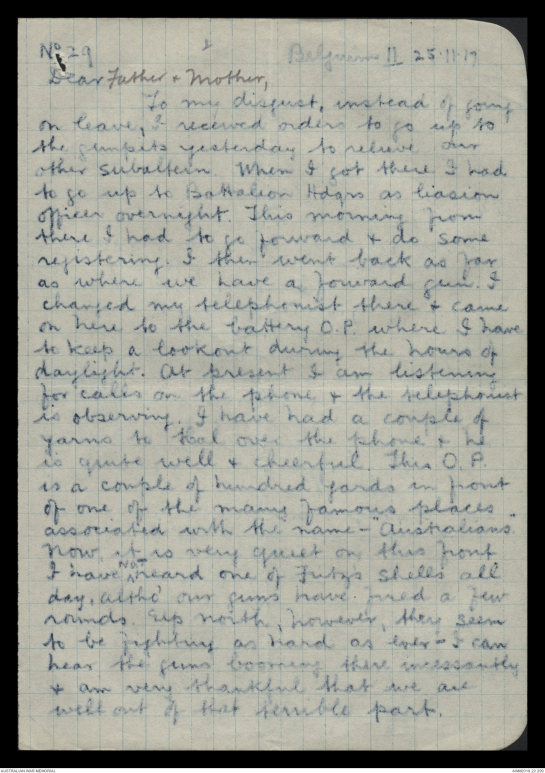 No 29 Belgium II 25.11.17
Dear Father & Mother,
To my disgust, instead of going
on leave, I received orders to go up to
the gunpits yesterday to relieve our
other subaltern. When I got there I had
to go up to Battalion Hdqrs as liasion
officer overnight. This morning from
there I had to go forward & do some
registering. I then went back as far
as where we have a forward gun. I
changed my telephonist there & came
on here to the battery O.P. where I have
to keep a lookout during the hours of
daylight. At present I am listening
for calls on the phone & the telephonist
is observing. I have had a couple of
yarns to Hal over the phone & he
is quite well & cheerful. This O.P.
is a couple of hundred yards in front
of one of the many famous places
associated with the name - "Australians".
Now, it is very quiet on this front
I have not heard one of Fritz's shells all
day, altho' our guns have fired a few
rounds. Up north, however, they seem
to be fighting as hard as ever - I can
hear the guns booming there incessantly
& am very thankful that we are
well out of that terrible part.
AUSTRALIAN WAR MEMORIAL